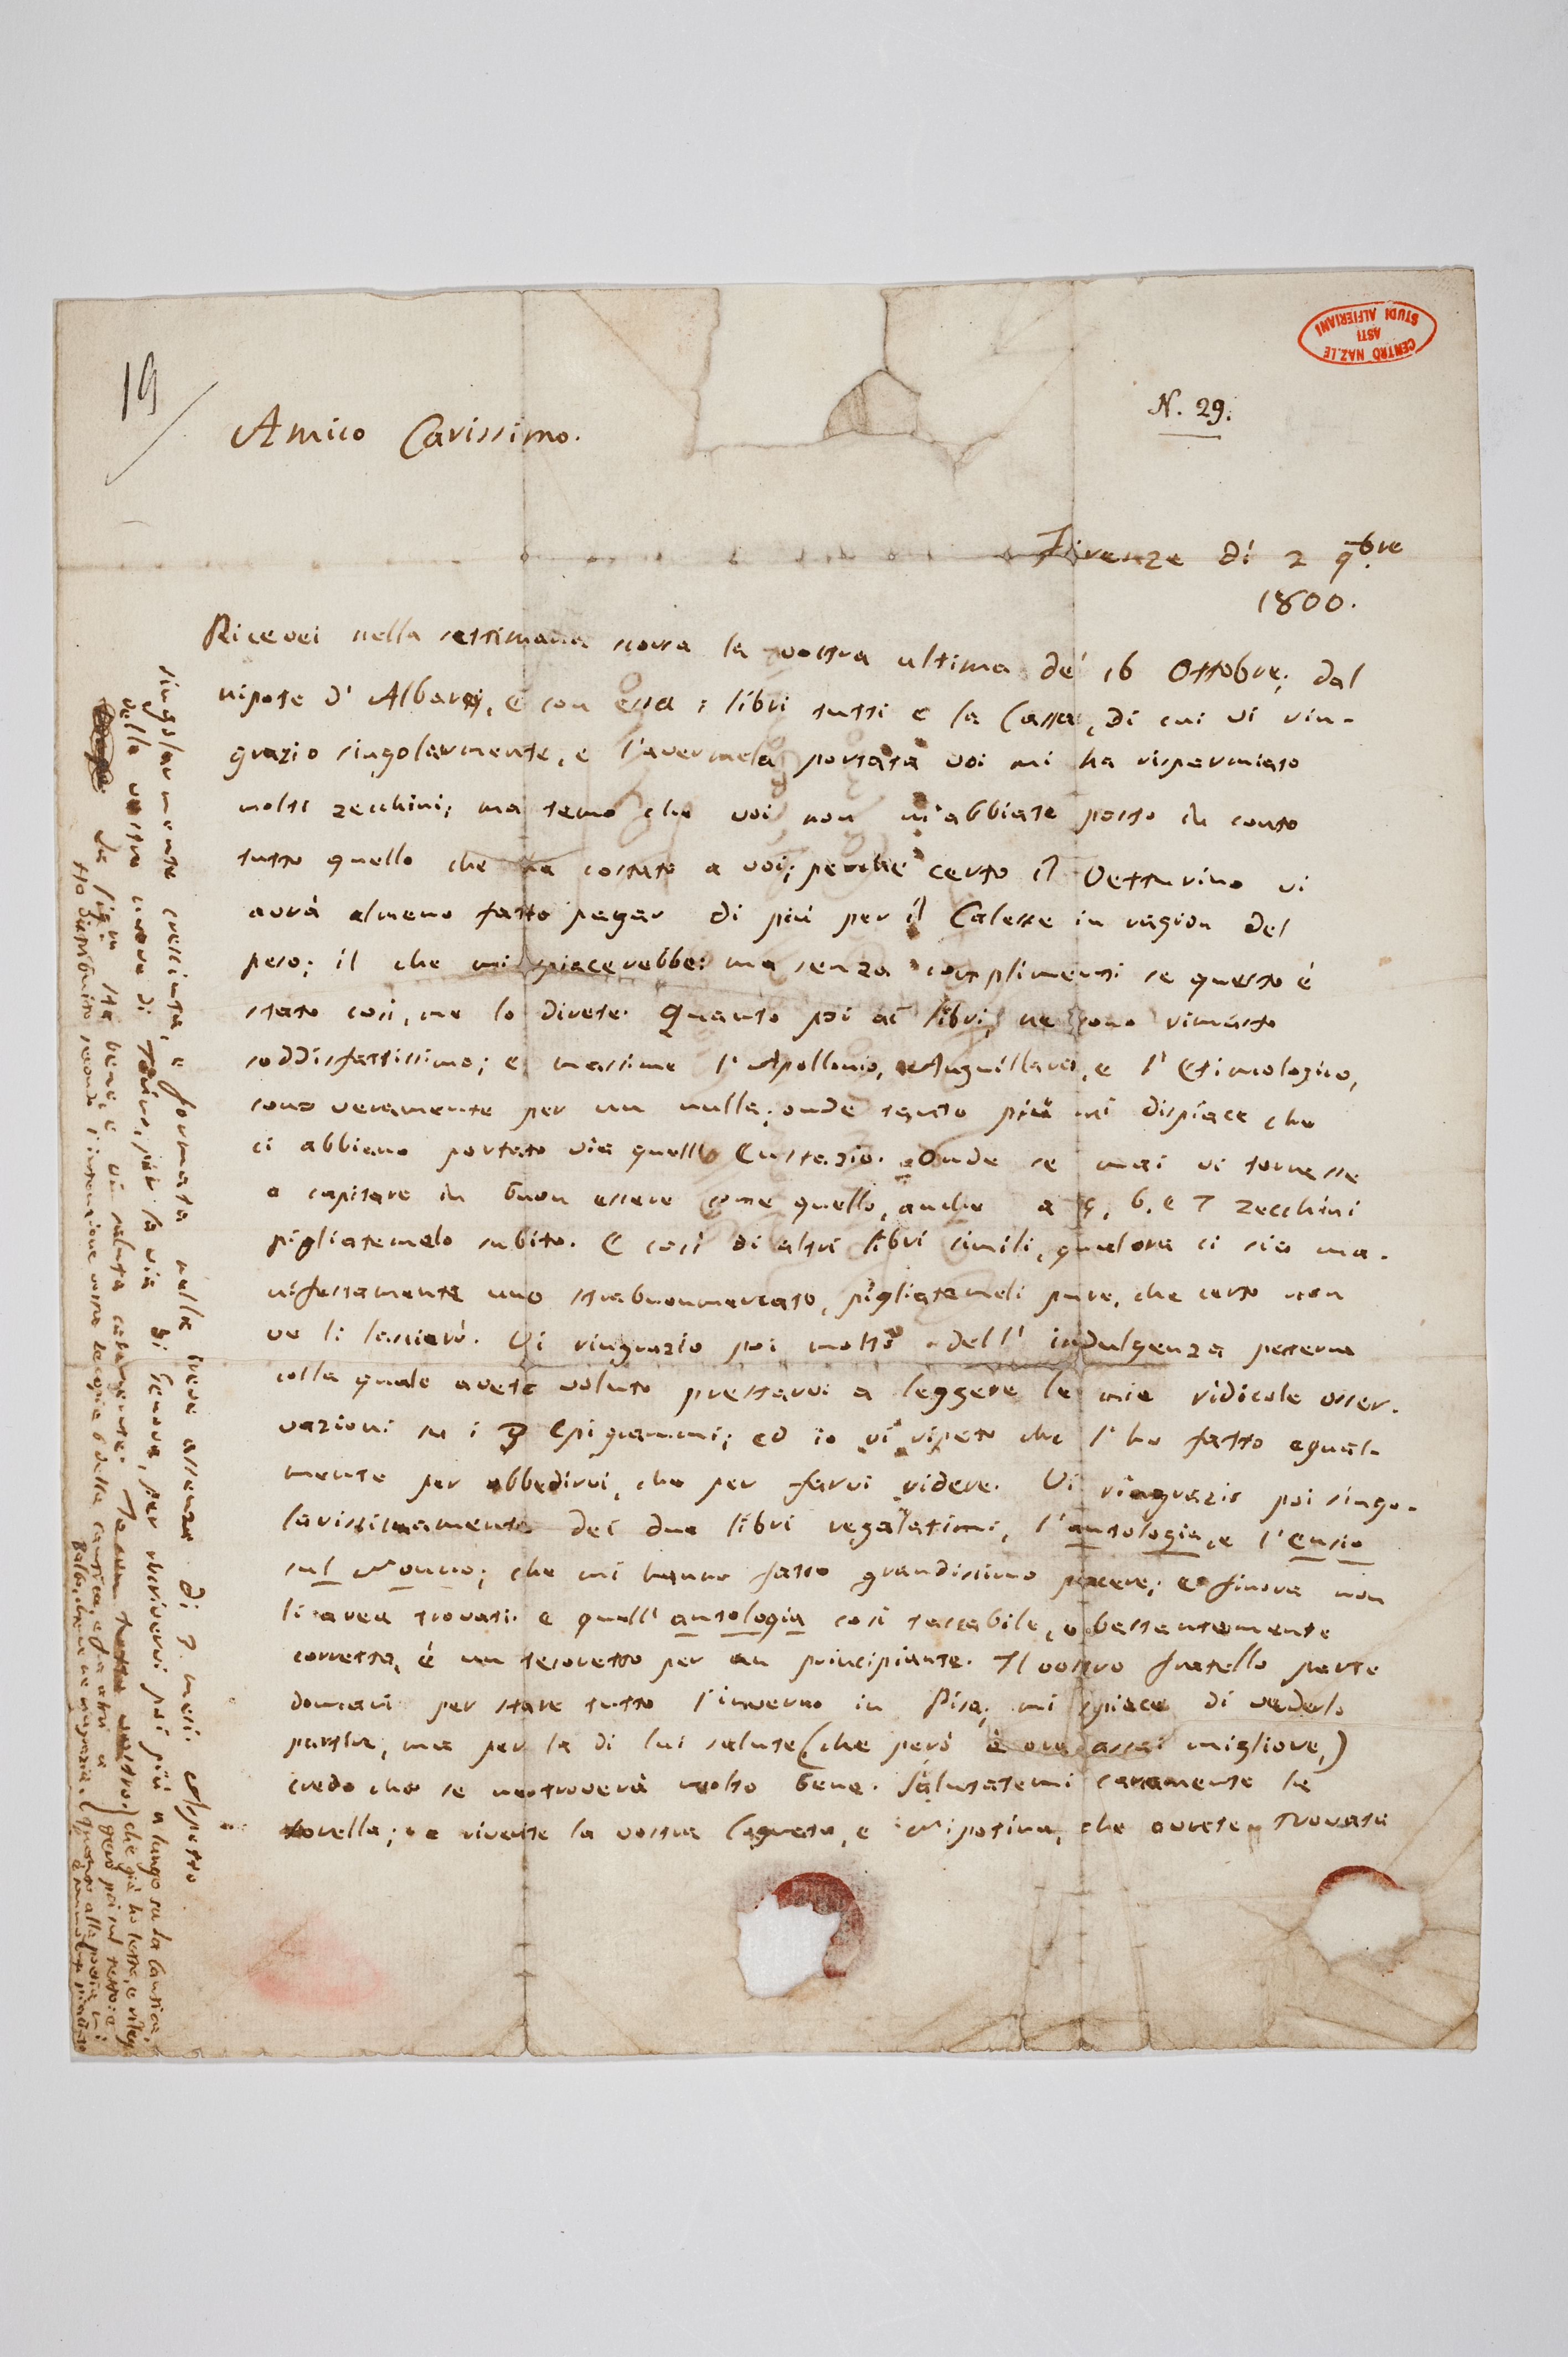 19
CENTRO NAZ.LE
ASTI
STUDI ALFIERIANI
N. 29.
Amico Carissimo.
Firenze dì 2 9bre
1800.
Ricevei nella settimana scorsa la vostra ultima de' 16 Ottobre; dal
nipote d'Albarey, e con essa i libri tutti e la Cassa, di cui vi rin-
grazio singolarmente, e l'avermela portata voi mi ha risparmiato
molti zecchini; ma temo che voi non m'abbiate posto in conto
tutto quello che ha costato a voi; perchè certo il Vetturino vi
avrà almeno fatto pagar di più per il Calesse in ragion del
peso; il che mi spiacerebbe: ma senza complimenti se questo è
stato così, me lo direte. Quanto poi ai libri, ne sono rimasto
soddisfattissimo; e massime l'Apollonio, Anguillara, e l'Etimologico,
sono veramente per un nulla; onde tanto più mi dispiace che
ci abbiano portato via quell' Eustazio. Onde se mai vi tornasse
a capitare in buon essere come quello, anche a 5, 6, e 7 zecchini
pigliatemelo subito. E così di altri libri simili, qualora ci sia ma-
nifestamente uno strabuonmercato, pigliatemeli pure, che certo non
ve li lascierò. Vi ringrazio poi molto dell' indulgenza
colla quale avete voluto prestarvi a leggere le mie ridicole osser-
vazioni su i 3 Epigrammi; ed io vi ripeto che l'ho fatto egual-
mente per obbedirvi, che per farvi ridere. Vi ringrazio poi singo-
larissimamente dei due libri regalatimi, l'antologia, e l'
sul Nonno; che mi hanno fatto grandissimo piacere; e finora non
li avea trovati. e quell' antologia così tascabile, e bastantemente
corretta, è un tesoretto per un principiante. Il vostro fratello parte
domani per stare tutto l'inverno in Pisa; mi spiace di vederlo
partire, ma per la di lui salute (che però è ora assai migliore,)
credo che se ne troverà molto bene. Salutatemi caramente la
sorella; e riverite la vostra Cognata, e Nipotina, che avrete trovata
singolarmente cresciuta, e formata nella breve assenza di 7. mesi. Aspetto
delle vostre nuove di Torino, per la via di Genova, per riscrivervi poi più a lungo su la Cantica,
che già ho letta, e
La Sig.ra sta bene, e vi saluta caramente. vostro.
Ho distribuito secondo l'intenzione vostra le copie 6 della Cantica, e fra altri a